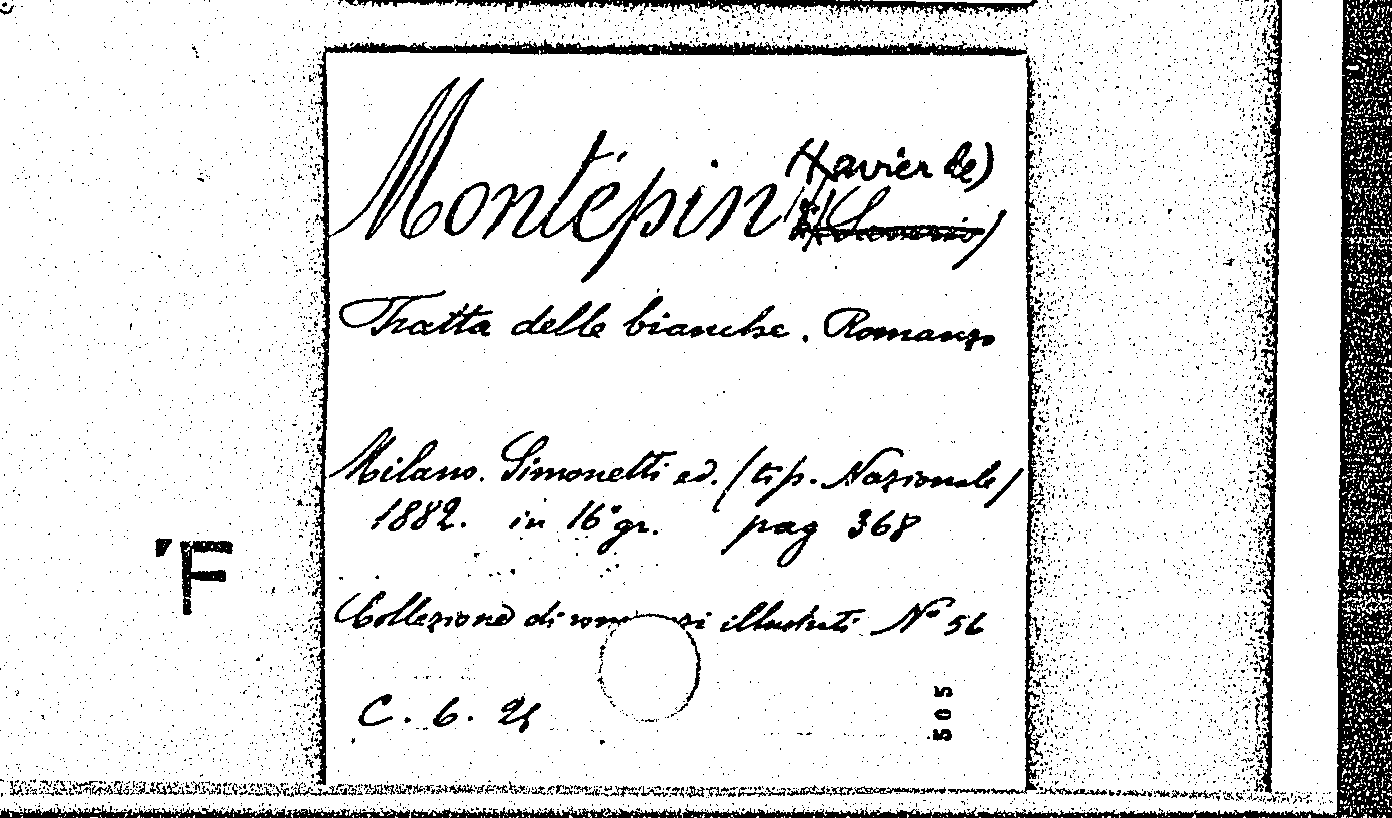 Montépin (Xavier de)
Tratta delle bianche. Romanzo
Milano. Simonetti ed. (tip. Nazionale)
1882. in 16° gr. pag 368
'F
Collezione di illustrati Nº 56
C. 6.
505